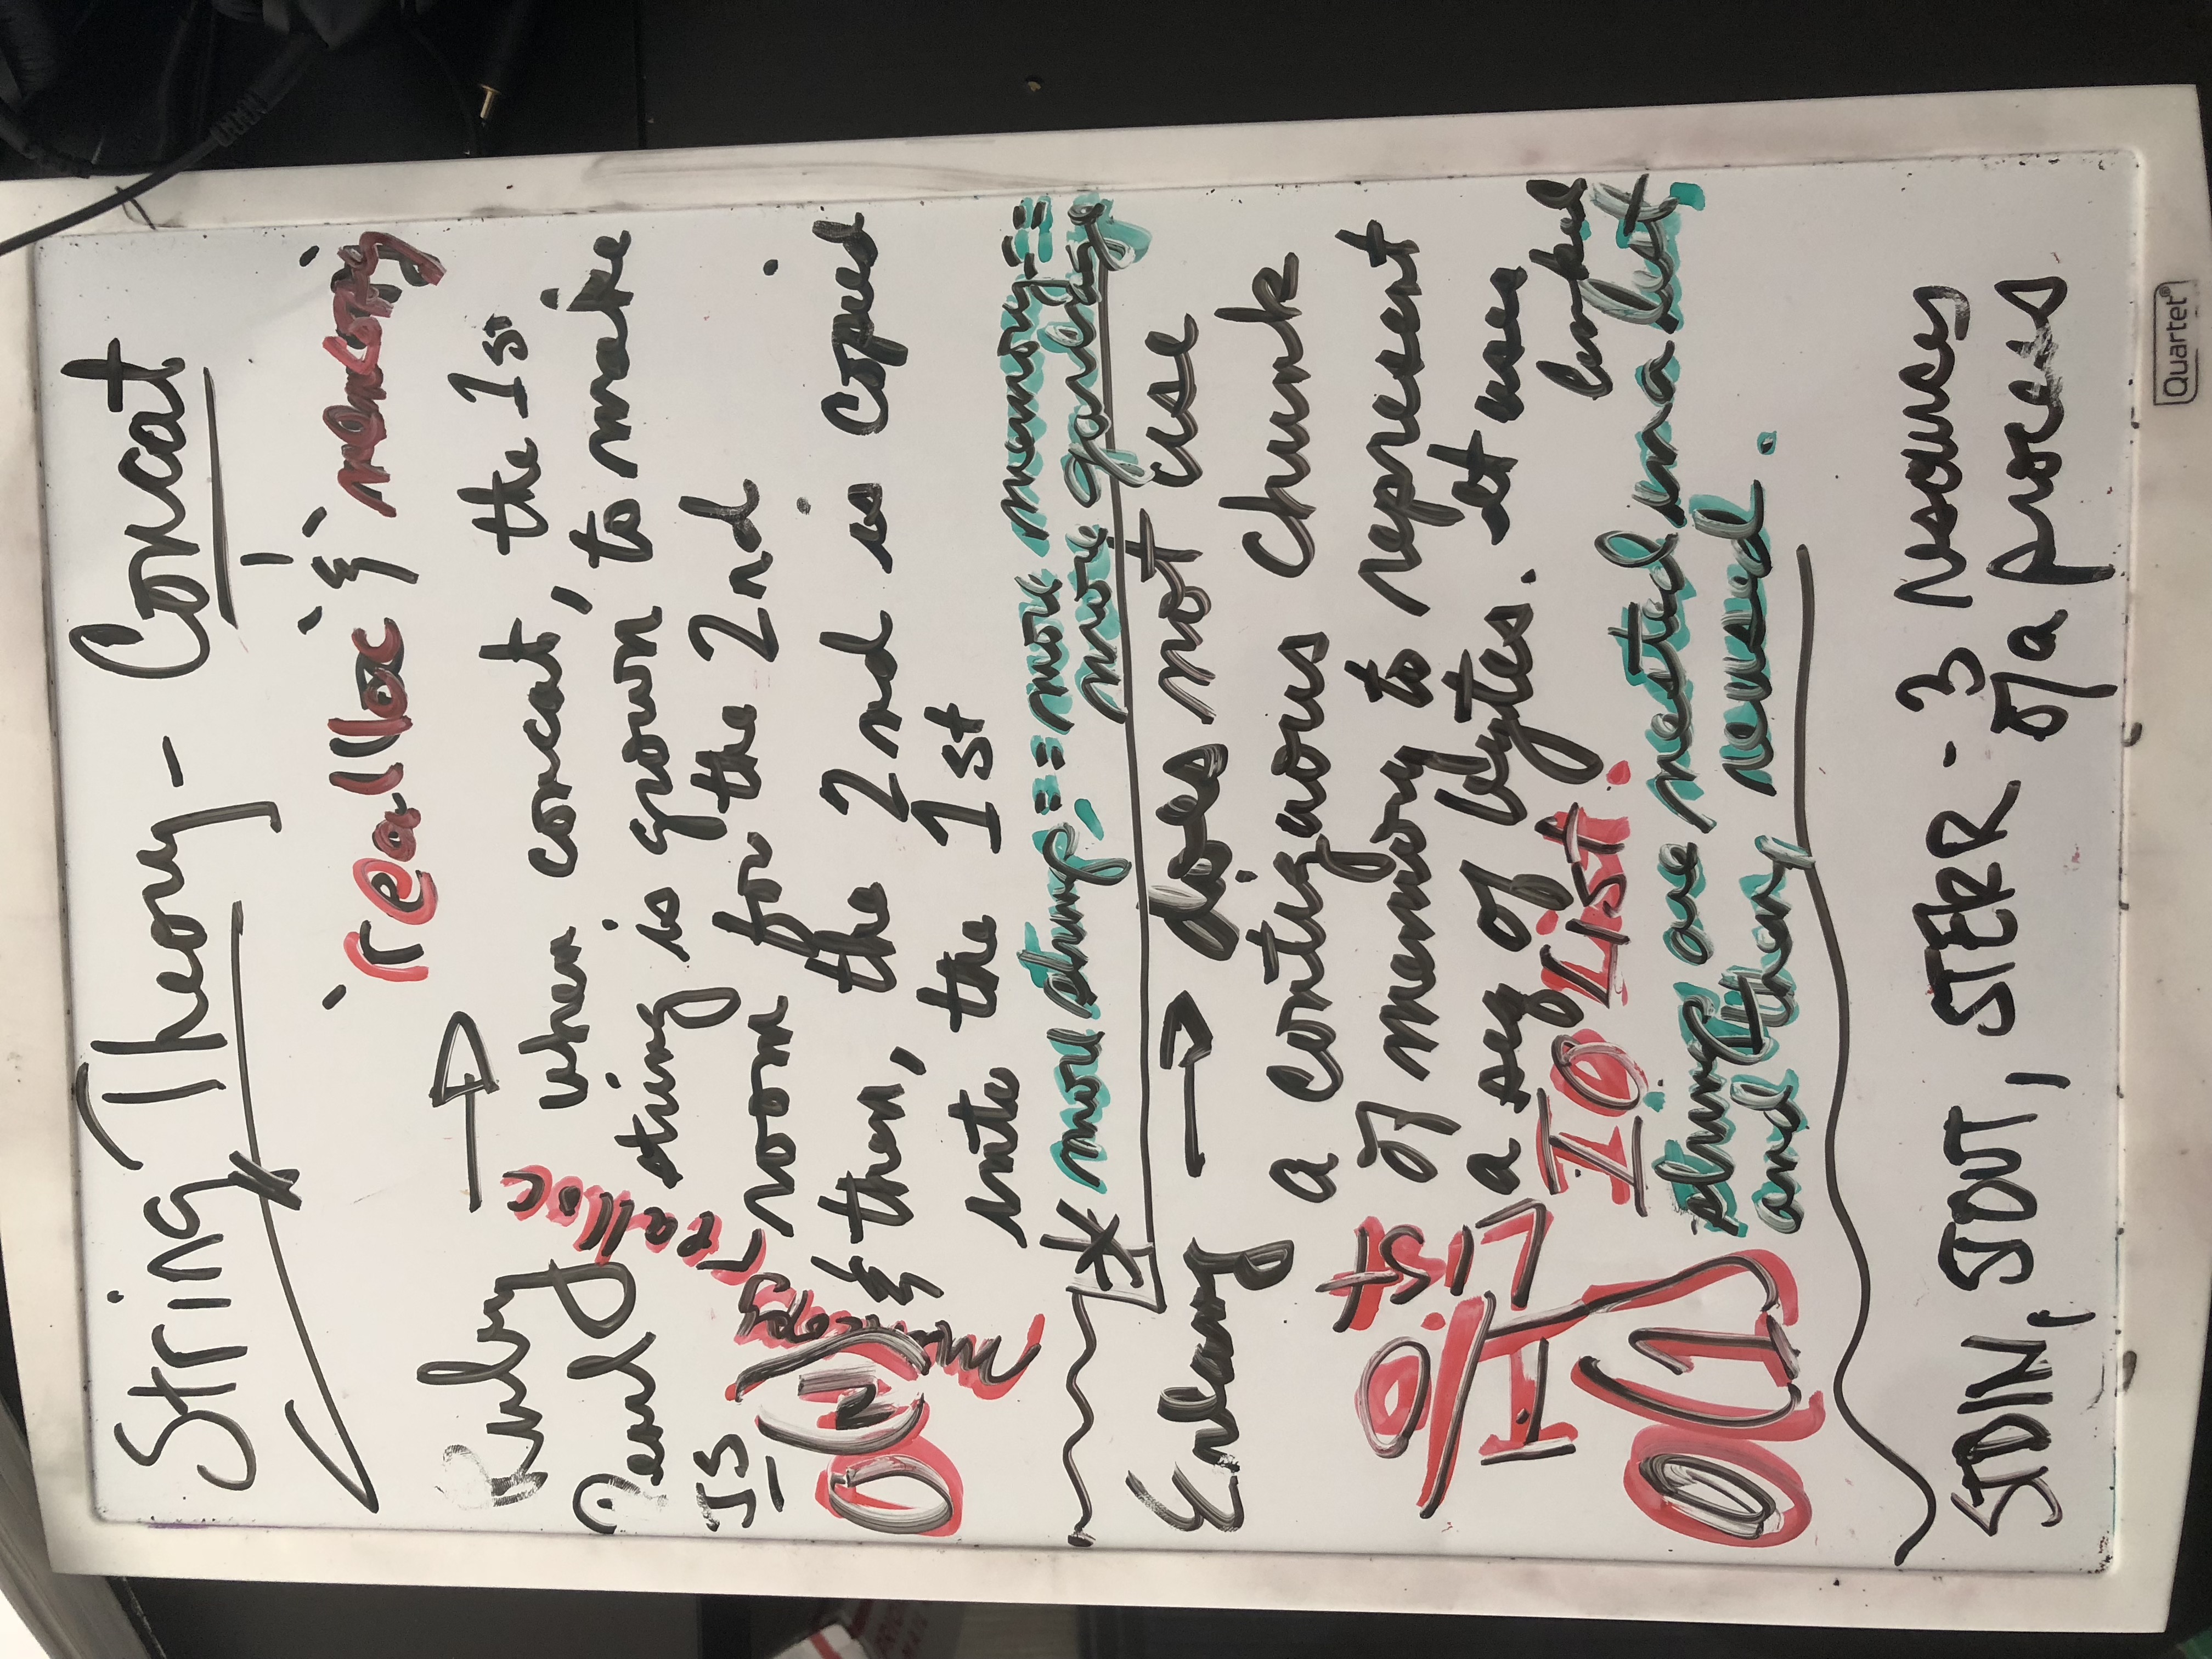 String Theory - Concat
`realloc` & `memcopy`
Ruby →
Pearl
JS
O(N)
memcopy realloc
when concat, the 1st
string is grown to make
room for the 2nd
& then, the 2nd is copied
into the 1st
* more strings == more memory ==
more garbage
Erlang → does not use
a contiguous chunk
of memory to represent
a seq of bytes. It uses
IO List.
I/O List
O(1)
linked
strings are nested in a list,
and then, reused.
STDIN, STOUT, STERR - 3 resources
of a process
Quartet®